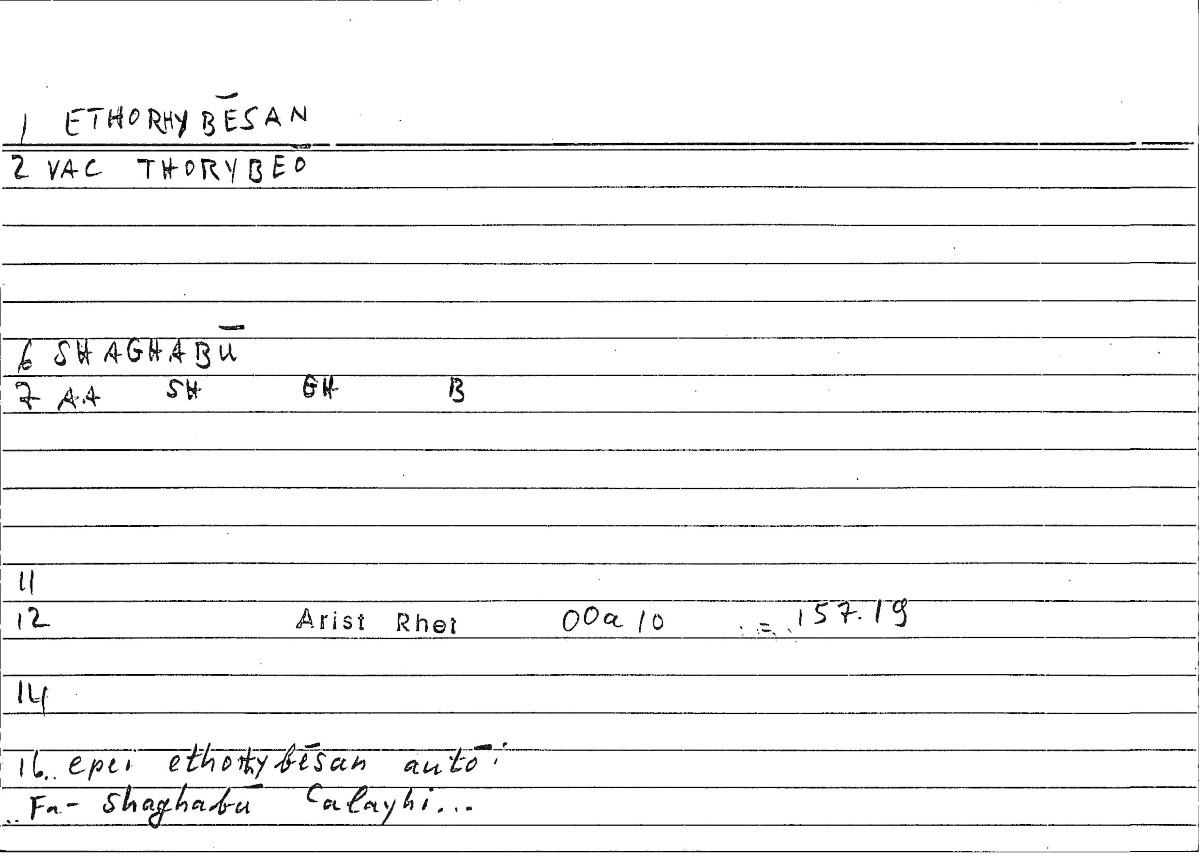 1 ETHORHYBĒSAN
2 VAC THORYBEŌ
6 SHAGHABŪ
7 AA SH GH B
11
12 Arist Rhet 00a10 = 157.19
14
16.. epei ethorhybēsan autō:
.. Fa- shaghabū Calayhi...